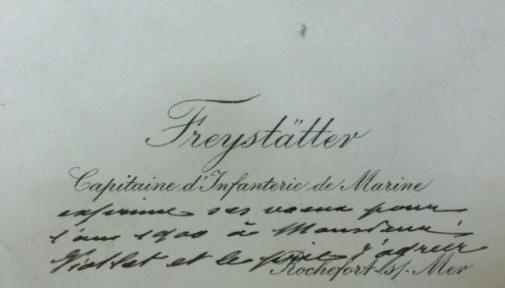 Freystätter
Capitaine d'Infanterie de Marine
exprime ses voeux pour
l'an 1900 à Monsieur
Viollet et le prie d'agréer
Rochefort s/ Mer